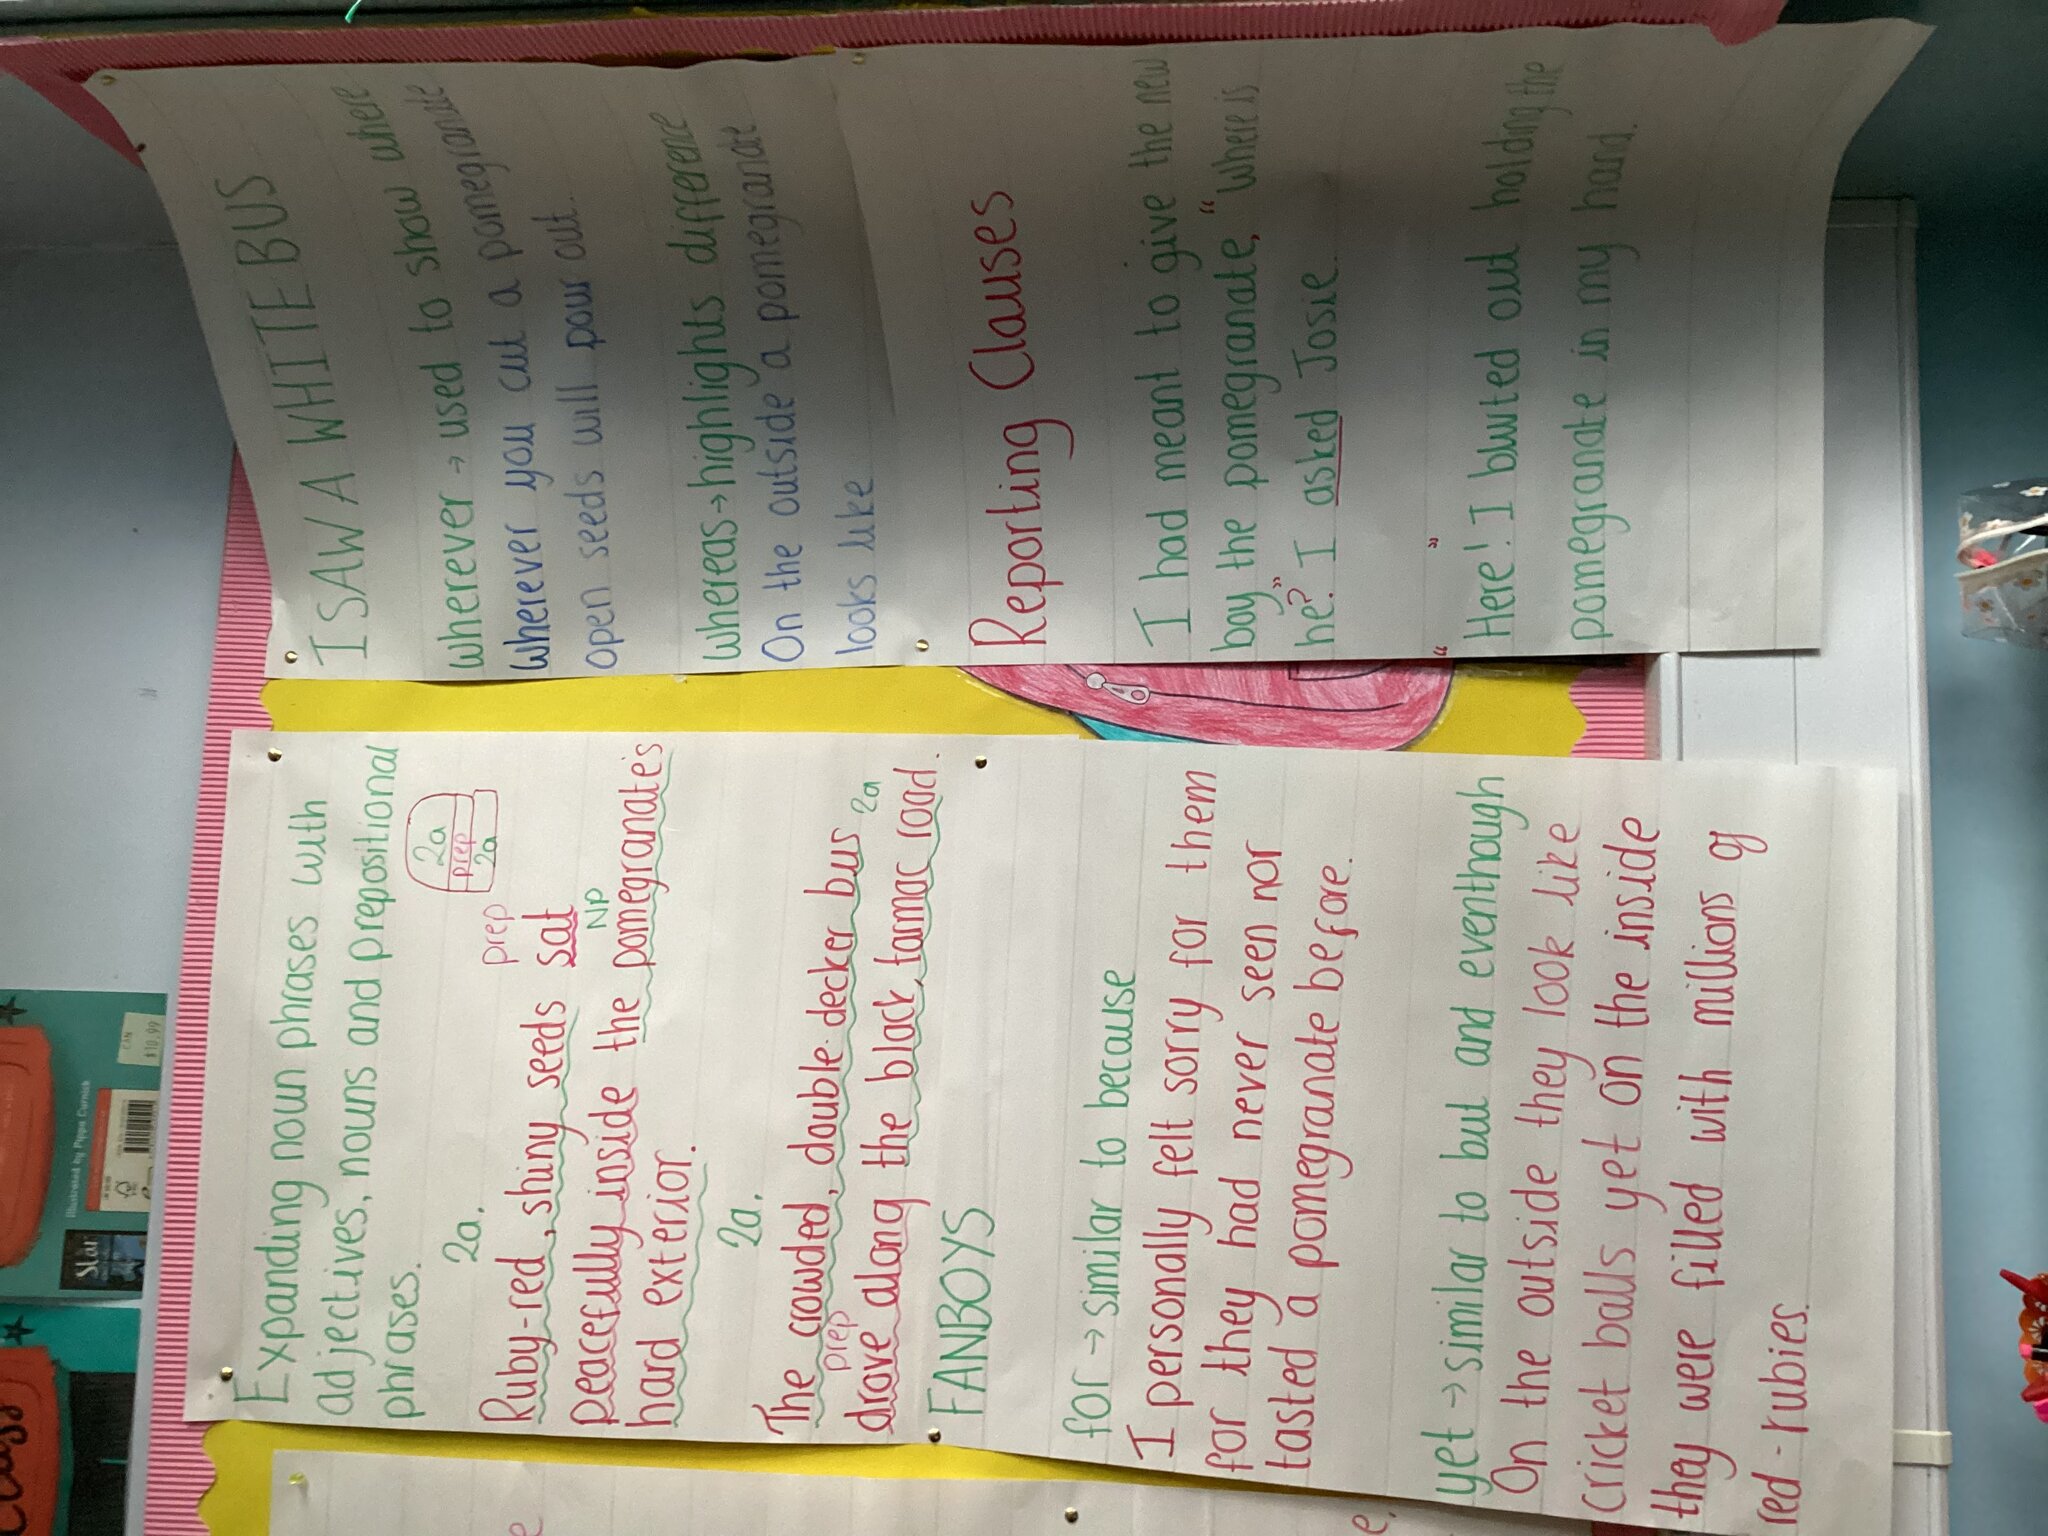 Class
Illustrated by Pippa Curnick
Star
CAN
$10.99
Expanding noun phrases with
adjectives, nouns and prepositional
phrases.
2a
prep
2a
2a.
prep
Ruby-red, shiny seeds sat
NP
peacefully inside the pomegranate's
hard exterior.
2a.
The crowded, double-decker bus
prep
2a
drove along the black, tarmac road.
FANBOYS
for → similar to because
I personally felt sorry for them
for they had never seen nor
tasted a pomegranate before.
yet → similar to but and eventhough
On the outside they look like
cricket balls yet on the inside
they were filled with millions of
red-rubies.
I SAW A WHITE BUS
wherever → used to show where
wherever you cut a pomegranate
open seeds will pour out.
whereas → highlights difference
On the outside a pomegranate
looks like
Reporting Clauses
I had meant to give the new
boy the pomegranate, "Where is
he?" I asked Josie.
" "
Here! I blurted out holding the
pomegranate in my hand.
e
e.